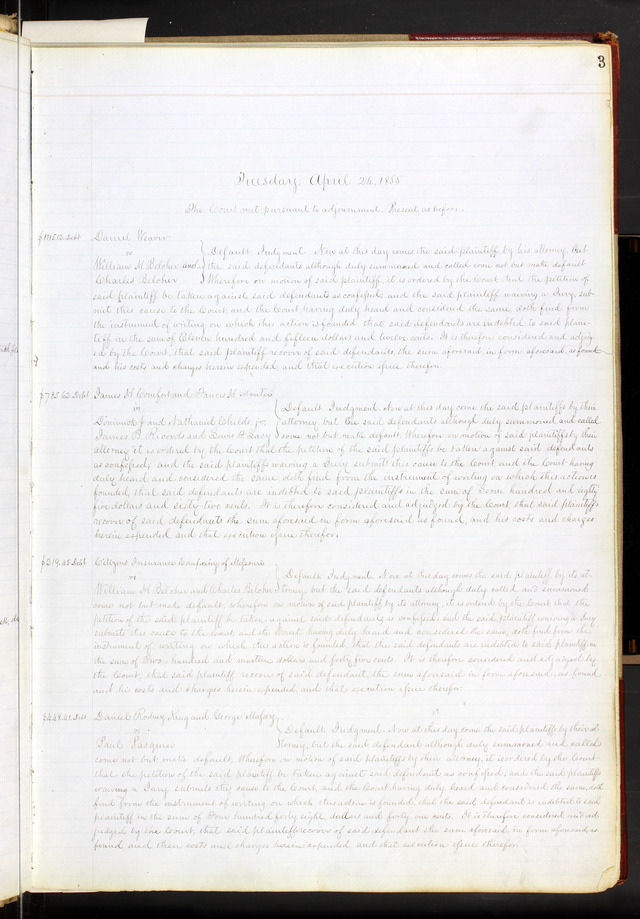 3
Tuesday, April 24, 1855
The Court met pursuant to adjournment. Present as before.
$1115.12 Debt Daniel Weaver
vs
William H Belcher and
Charles Belcher
Default Judgment Now at this day comes the said plaintiff by his attorney, but
the said defendants although duly summoned and called come not but make default
Wherefore on motion of said plaintiff, it is ordered by the Court that the petition of
said plaintiff be taken against said defendants as confessed and the said plaintiff waiving a Jury, sub-
mit this cause to the Court and the Court having duly heard and considered the same, doth find from
the instrument of writing on which this action is founded, that said defendants are indebted to said plain-
tiff in the sum of Eleven hundred and fifteen dollars and twelve cents. It is therefore considered and adjudg-
ed by the Court, that said plaintiff recover of said defendants, the sum aforesaid, in form aforesaid, as found
and his costs and charges herein expended and that execution issue therefor.
Debt James H Comfort and
vs
and Nathaniel Childs jr.
James B. Records and Lewis
Default Judgment. Now at this day come the said plaintiffs by their
attorney but the said defendants although duly summoned and called
come not but make default. Wherefore on motion of said plaintiffs by their
attorney it is ordered by the Court that the petition of the said plaintiffs be taken against said defendants
as confessed, and the said plaintiffs waiving a Jury submit this cause to the Court and the Court having
duly heard and considered the same doth find from the instrument of writing on which this action is
founded, that said defendants are indebted to said plaintiffs in the sum of hundred and eighty
five dollars and sixty-two cents. It is therefore considered and adjudged by the Court, that said plaintiffs
recover of said defendants the sum aforesaid in form aforesaid as found, and his costs and charges
herein expended and that execution issue therefor.
$219.45 Debt Citizens Insurance Company of Missouri
vs
William H Belcher and Charles Belcher
Default Judgment. Now at this day comes the said plaintiff by its at-
torney, but the said defendants although duly called and summoned
come not but make default, wherefore on motion of said plaintiff by its attorney, it is ordered by the Court that the
petition of the said plaintiff be taken against said defendants as confessed, and the said plaintiff waiving a Jury
submits this cause to the Court and the Court having duly heard and considered the same, doth find from the
instrument of writing on which this action is founded, that the said defendants are indebted to said plaintiff in
the sum of Two hundred and nineteen dollars and forty five cents. It is therefore considered and adjudged by
the Court, that said plaintiff recover of said defendant, the sum aforesaid in form aforesaid, as found
and his costs and charges herein expended, and that execution issue therefor.
$448.41 Debt Daniel Rodney King and George
vs
Paul
Default Judgment. Now at this day come the said plaintiffs by their at-
torney, but the said defendant although duly summoned and called
come not but make default, Wherefore on motion of said plaintiffs by their attorney, it is ordered by the Court
that the petition of the said plaintiff be taken against said defendant as confessed, and the said plaintiffs
waiving a Jury submits this cause to the Court, and the Court having duly heard and considered the same, doth
find from the instrument of writing on which this action is founded, that the said defendant is indebted to said
plaintiff in the sum of Four hundred forty eight, dollars and forty one cents. It is therefore considered and ad-
judged by the Court, that said plaintiff recover of said defendant the sum aforesaid, in form aforesaid as
found and their costs and charges herein expended and that execution issue therefor.